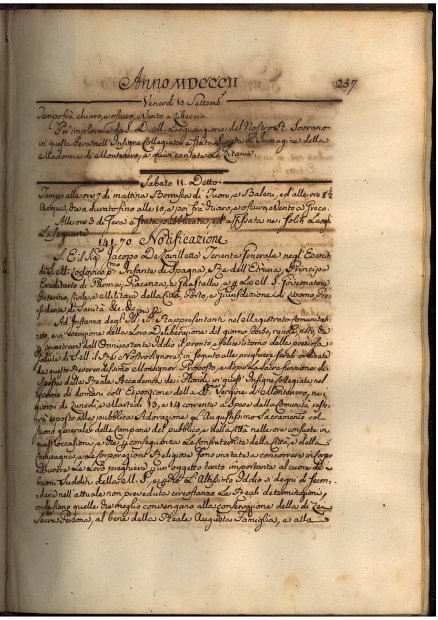 Anno MDCCCII
237
Venerdì 10. Settemb.
Tempo frà chiaro, e scuro, Vento a Libeccio.
Per implorare da S. D. M. La guarigione del Nostro R. Sovrano
in questa sera nell' Insigne Collegiata è stata L'Immagine della
Madonna di Montenero, e quivi cantate Le Litanie.
Sabato 11. Detto
Tempo alle ore 7 di mattina Borrasca di Tuoni, e Baleni, ed alle ore 8½
Acqua, che a durato fino alle 10, e poi frà chiaro, e oscuro, Vento a Greco.
Alle ore 3 di sera è stata pubblicata, ed affissata nei soliti Luoghi
La seguente
141.70 Notificazione
S. E. il Sig. Jacopo De Lavillette Tenente Generale negli Eserciti
di S. M. Lodovico p.º Infante di Spagna, Rè dell'Etruria, Principe
Ereditario di Parma, Piacenza, e Guastalla, e p. La M. S. Governatore
Interino, Civile, e Militare della Città, Porto, e Giurisdizione di Livorno, Presidente
di Sanità &c. &c. &c.
Ad Istanza degl' Ill. Rappresentanti nel Magistrato Comunitativo,
in esecuzione della Loro Deliberazione del giorno
impetrare dall'Onnipotente Iddio il pronto, e felice ritorno della preziosa
salute di S. M. il Rè Nostro Signore, in seguito alle preghiere fatte ordinate
da questo Reverendissimo Monsignor Proposto, e dopo La sacra funzione disposta
dalla Reale Accademia de i Floridi, in quest' Insigne Collegiata nel
giorno di domani coll' Esposizione della SS. Vergine di Montenero, nei
giorni di Lunedì, e Martedì 13, e 14 corrente a spese della Comunità resterà
esposto alla pubblica Adorazione L'Augustissimo Sacramento col
suono generale delle Campane del pubblico, e della Città nelle ore consuete in
quest'occasione, e di conseguenza Le Confraternite della Città, e della
Campagna, e Le Corporazioni Religiose sono invitate a concorrere in corpo
ad unire Le Loro preghiere p. un'oggetto tanto importante al cuore dei
buoni Sudditi della M. S., e che L'Altissimo Iddio si degni di secondare
nell'attuale non preveduta circostanza Le Reali determinazioni,
onde siano quelle che meglio convengano alla conservazione della di Lei
Sacra Persona, al bene della Reale Augusta Famiglia, e alla